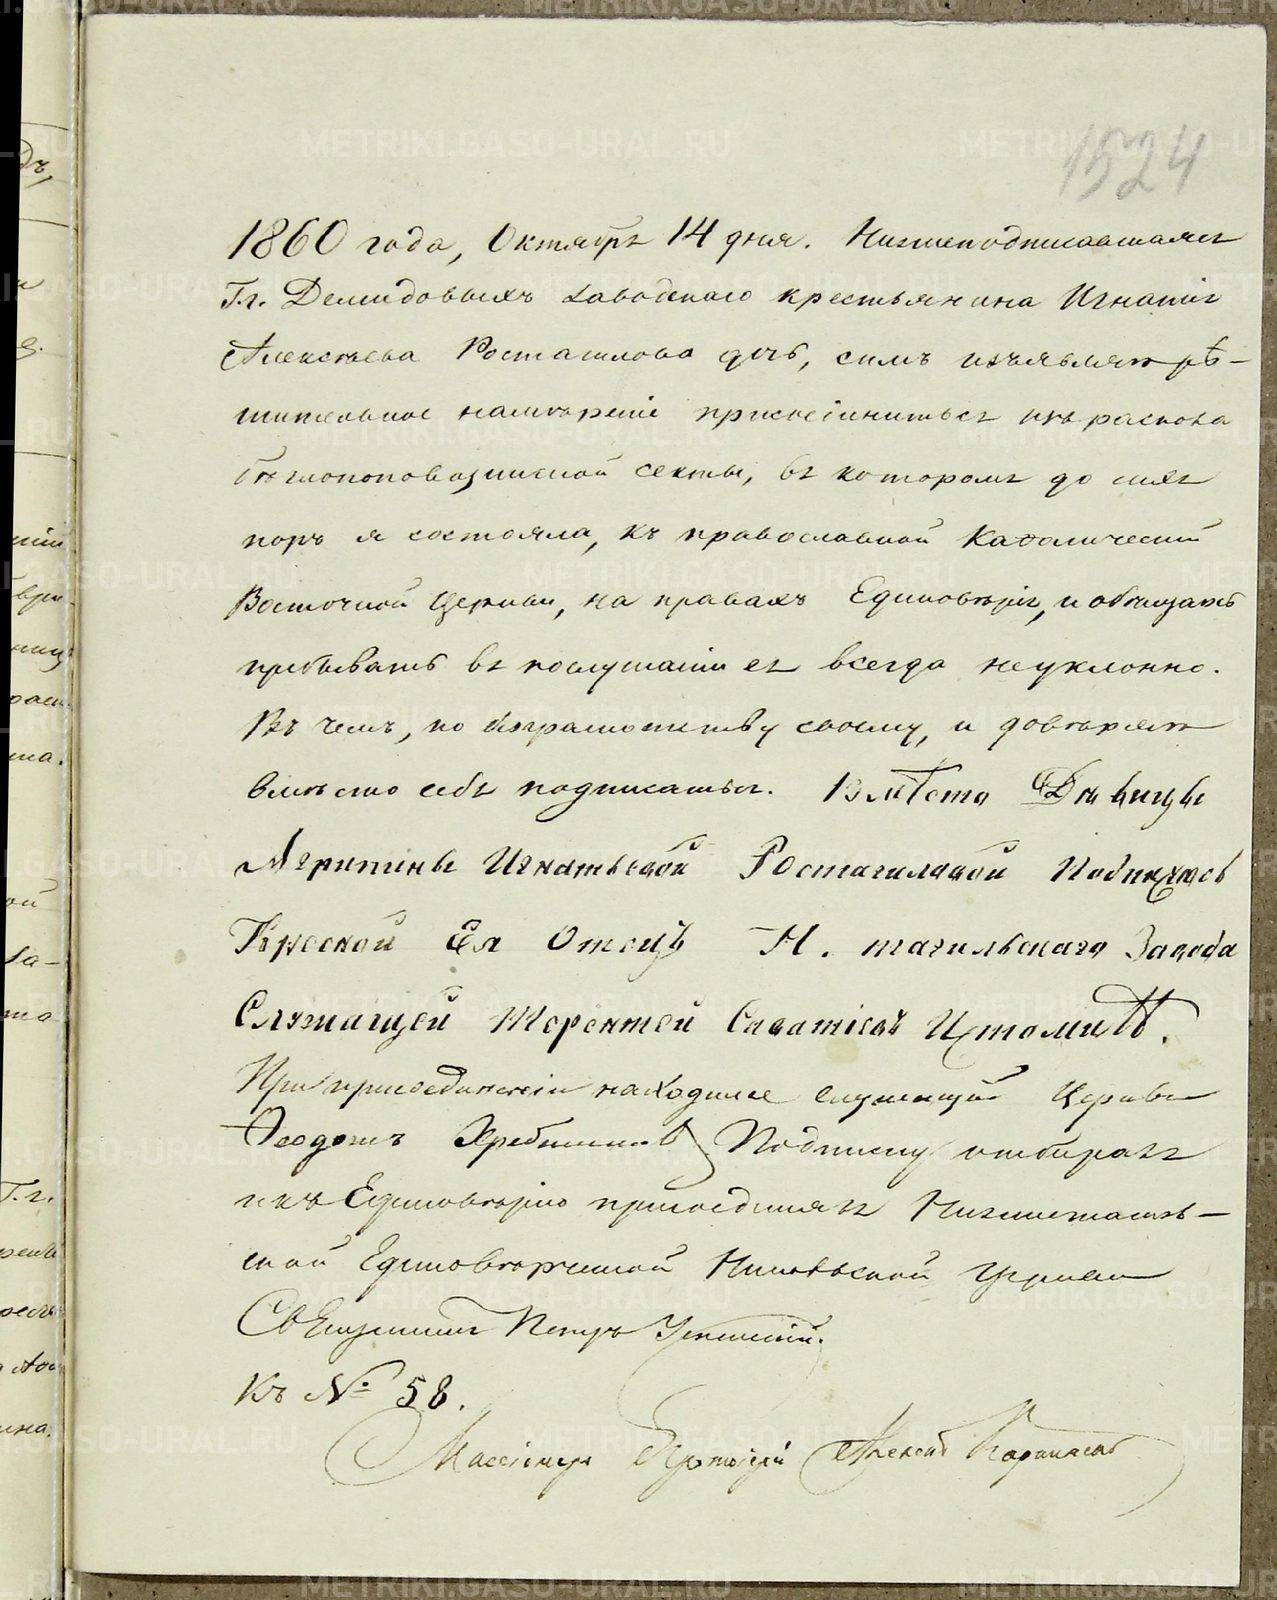 1524
1860 года, Октября 14 дня. Нижеподписавшаяся
Г.г. Демидовыхъ заводскаго крестьянина Игнатія
Алексѣева Ростагилова дочь, симъ изъявляю рѣ-
шительное намѣреніе присоединиться изъ раскола
бѣглопоповщинской секты, въ которомъ до сихъ
поръ я состояла, къ православной Каѳолической
Восточной Церкви, на правахъ Единовѣрія, и обѣщаюсь
пребывать въ послушаніи ея всегда неуклонно.
Въ чемъ, по безграмотству своему, и довѣряю
вмѣсто себя подписаться. Вмѣсто Дѣвицы
Агрипины Игнатьевой Ростагиловой Подпихюсь
Кресной Ея Отецъ Н. тагильскаго Завода
Служащей Терентей Саватіевъ Истоминъ.
При присоединеніи находился служащій Церкви
Ѳеодотъ Хребтиковъ Подписку отбиралъ
и къ Единовѣрію присоединялъ Нижнетагиль-
ской Единовѣрческой Никольской Церкви
Священникъ Петръ Успенскій.
Къ № 58.
Миссіонеръ Протоіерей Алексій Карпинскій